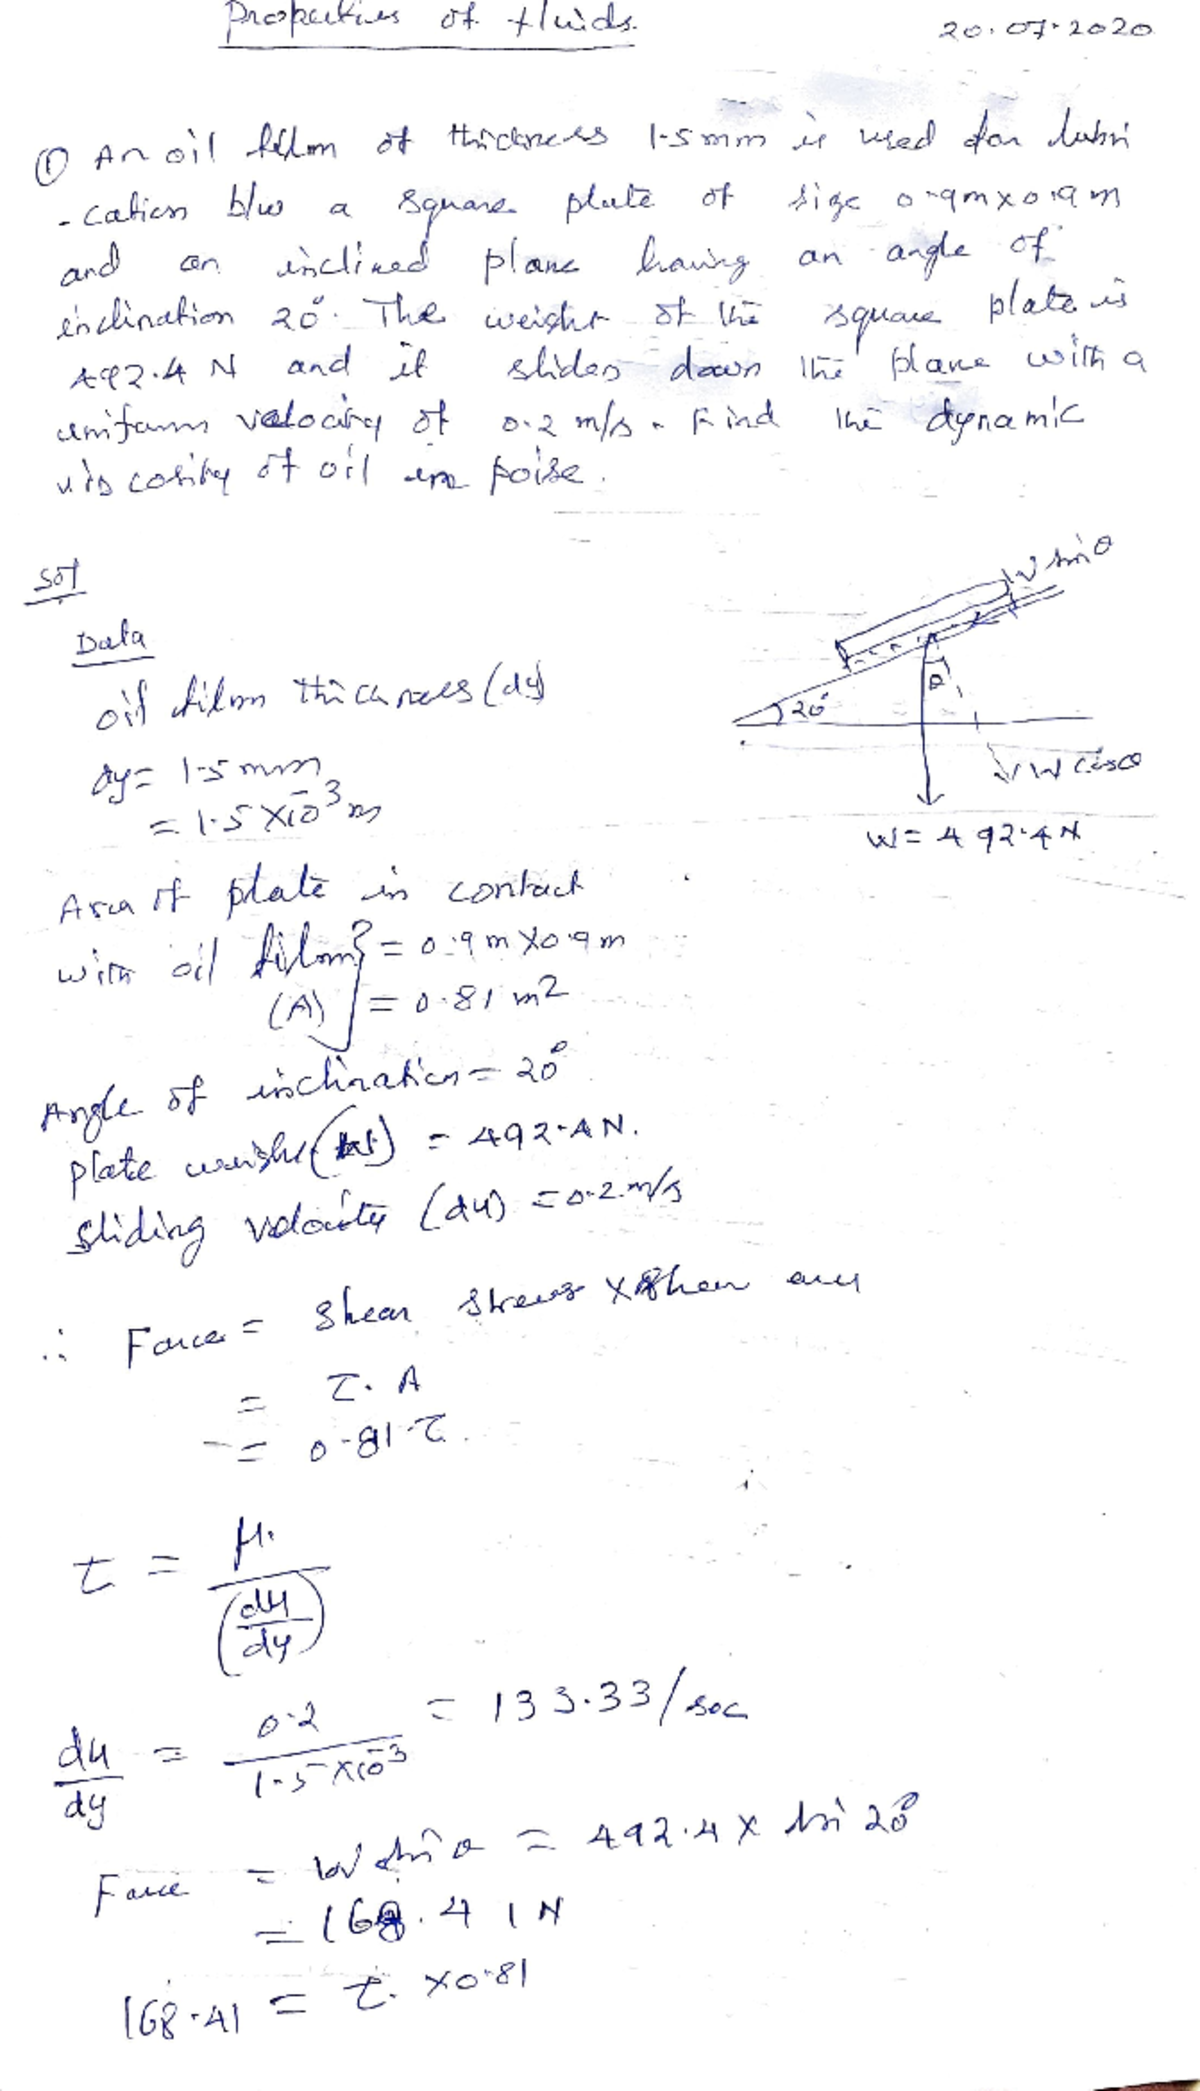 Properties of fluids.
20.07.2020
① An oil film of thickness 1.5mm is used for lubri
-cation b/w a square plate of size 0.9m×0.9m
and an inclined plane having an angle of
inclination 20°. The weight of the square plate is
492.4 N and it slides down the plane with a
uniform velocity of 0.2 m/s. Find the dynamic
viscosity of oil in poise.
Sol
Data
oil film thickness (dy)
dy = 1.5 mm
= 1.5×10⁻³ m
W sinθ
20°
θ
W cosθ
W = 492.4N
Area of plate in contact
with oil film} = 0.9m×0.9m
(A) = 0.81 m2
Angle of inclination = 20°
plate weight (wt) = 492.4N.
sliding velocity (du) = 0.2 m/s
∴ Force = Shear stress × Shear area
= τ. A
= 0.81 τ.
τ = μ. / (du/dy)
du/dy = 0.2 / 1.5×10⁻³ = 133.33/sec
Force = W sinθ = 492.4 × sin 20°
= 168.41N
168.41 = τ. ×0.81